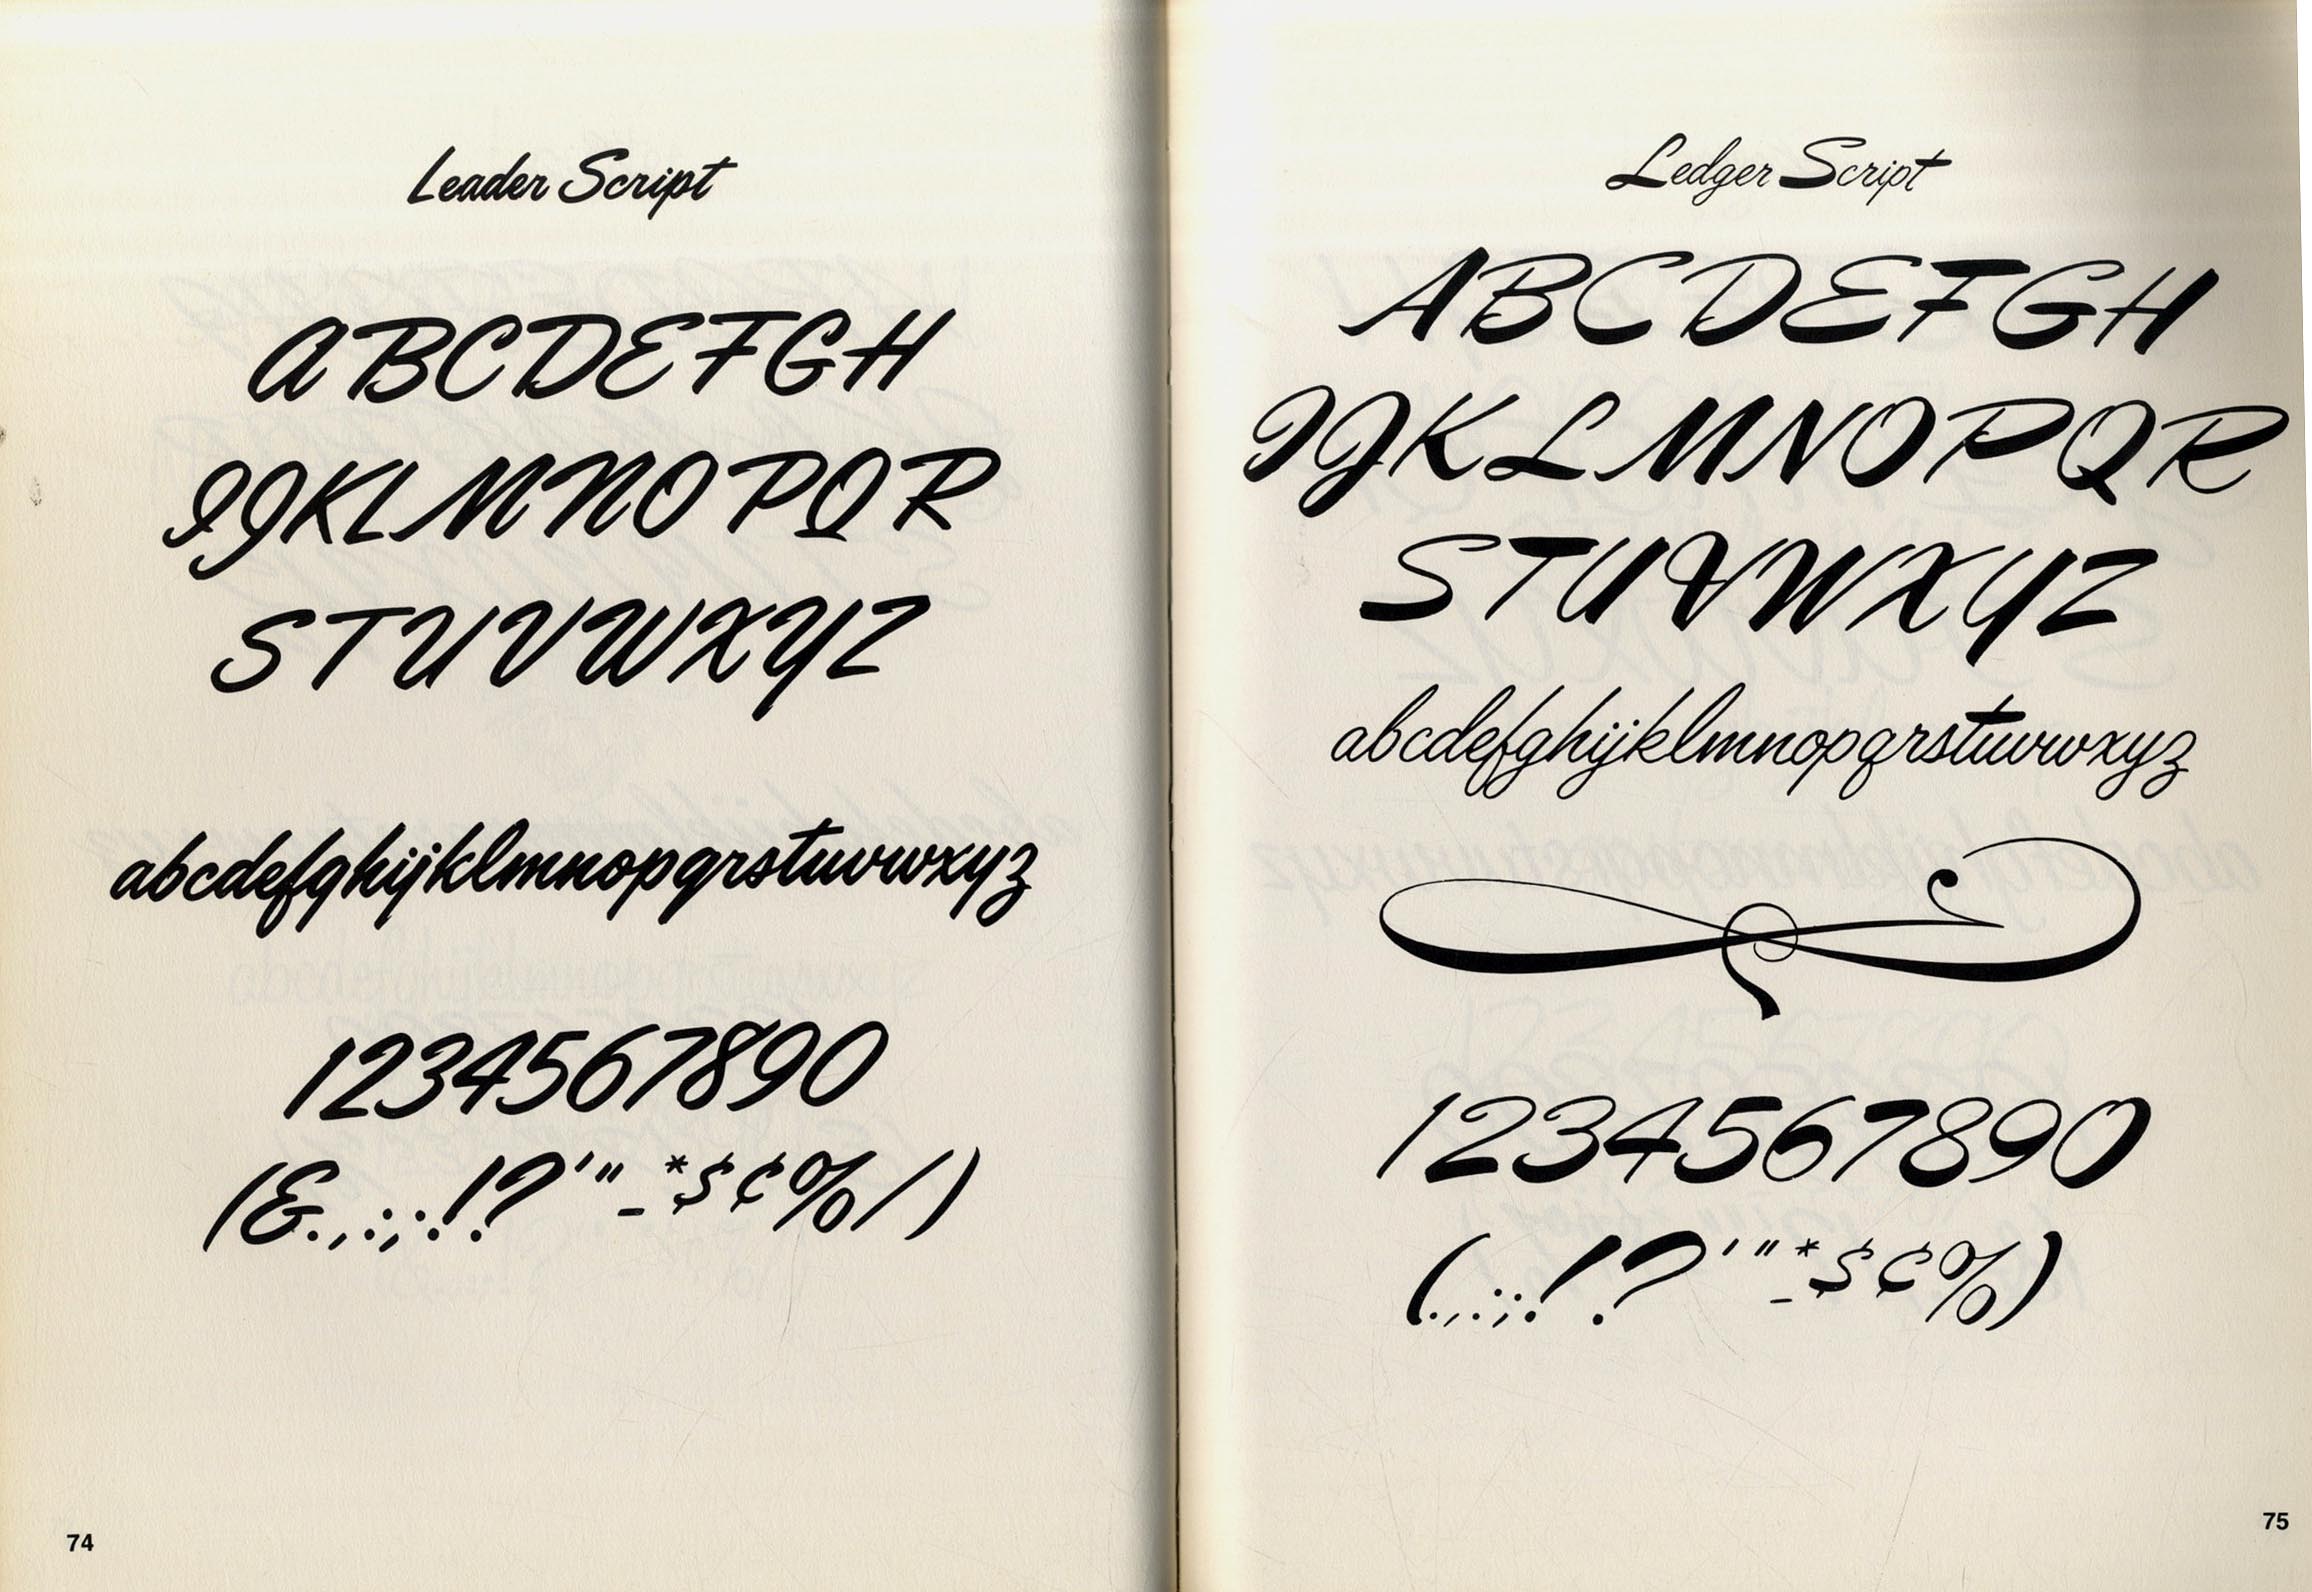 Leader Script
ABCDEFGH
IJKLMNOPQR
STUVWXYZ
abcdefghijklmnopqrstuvwxyz
1234567890
(&.,:;!?'"-*$¢%/)
74
Ledger Script
ABCDEFGH
IJKLMNOPQR
STUVWXYZ
abcdefghijklmnopqrstuvwxyz
1234567890
(.,:;!?'"-*$¢%)
75